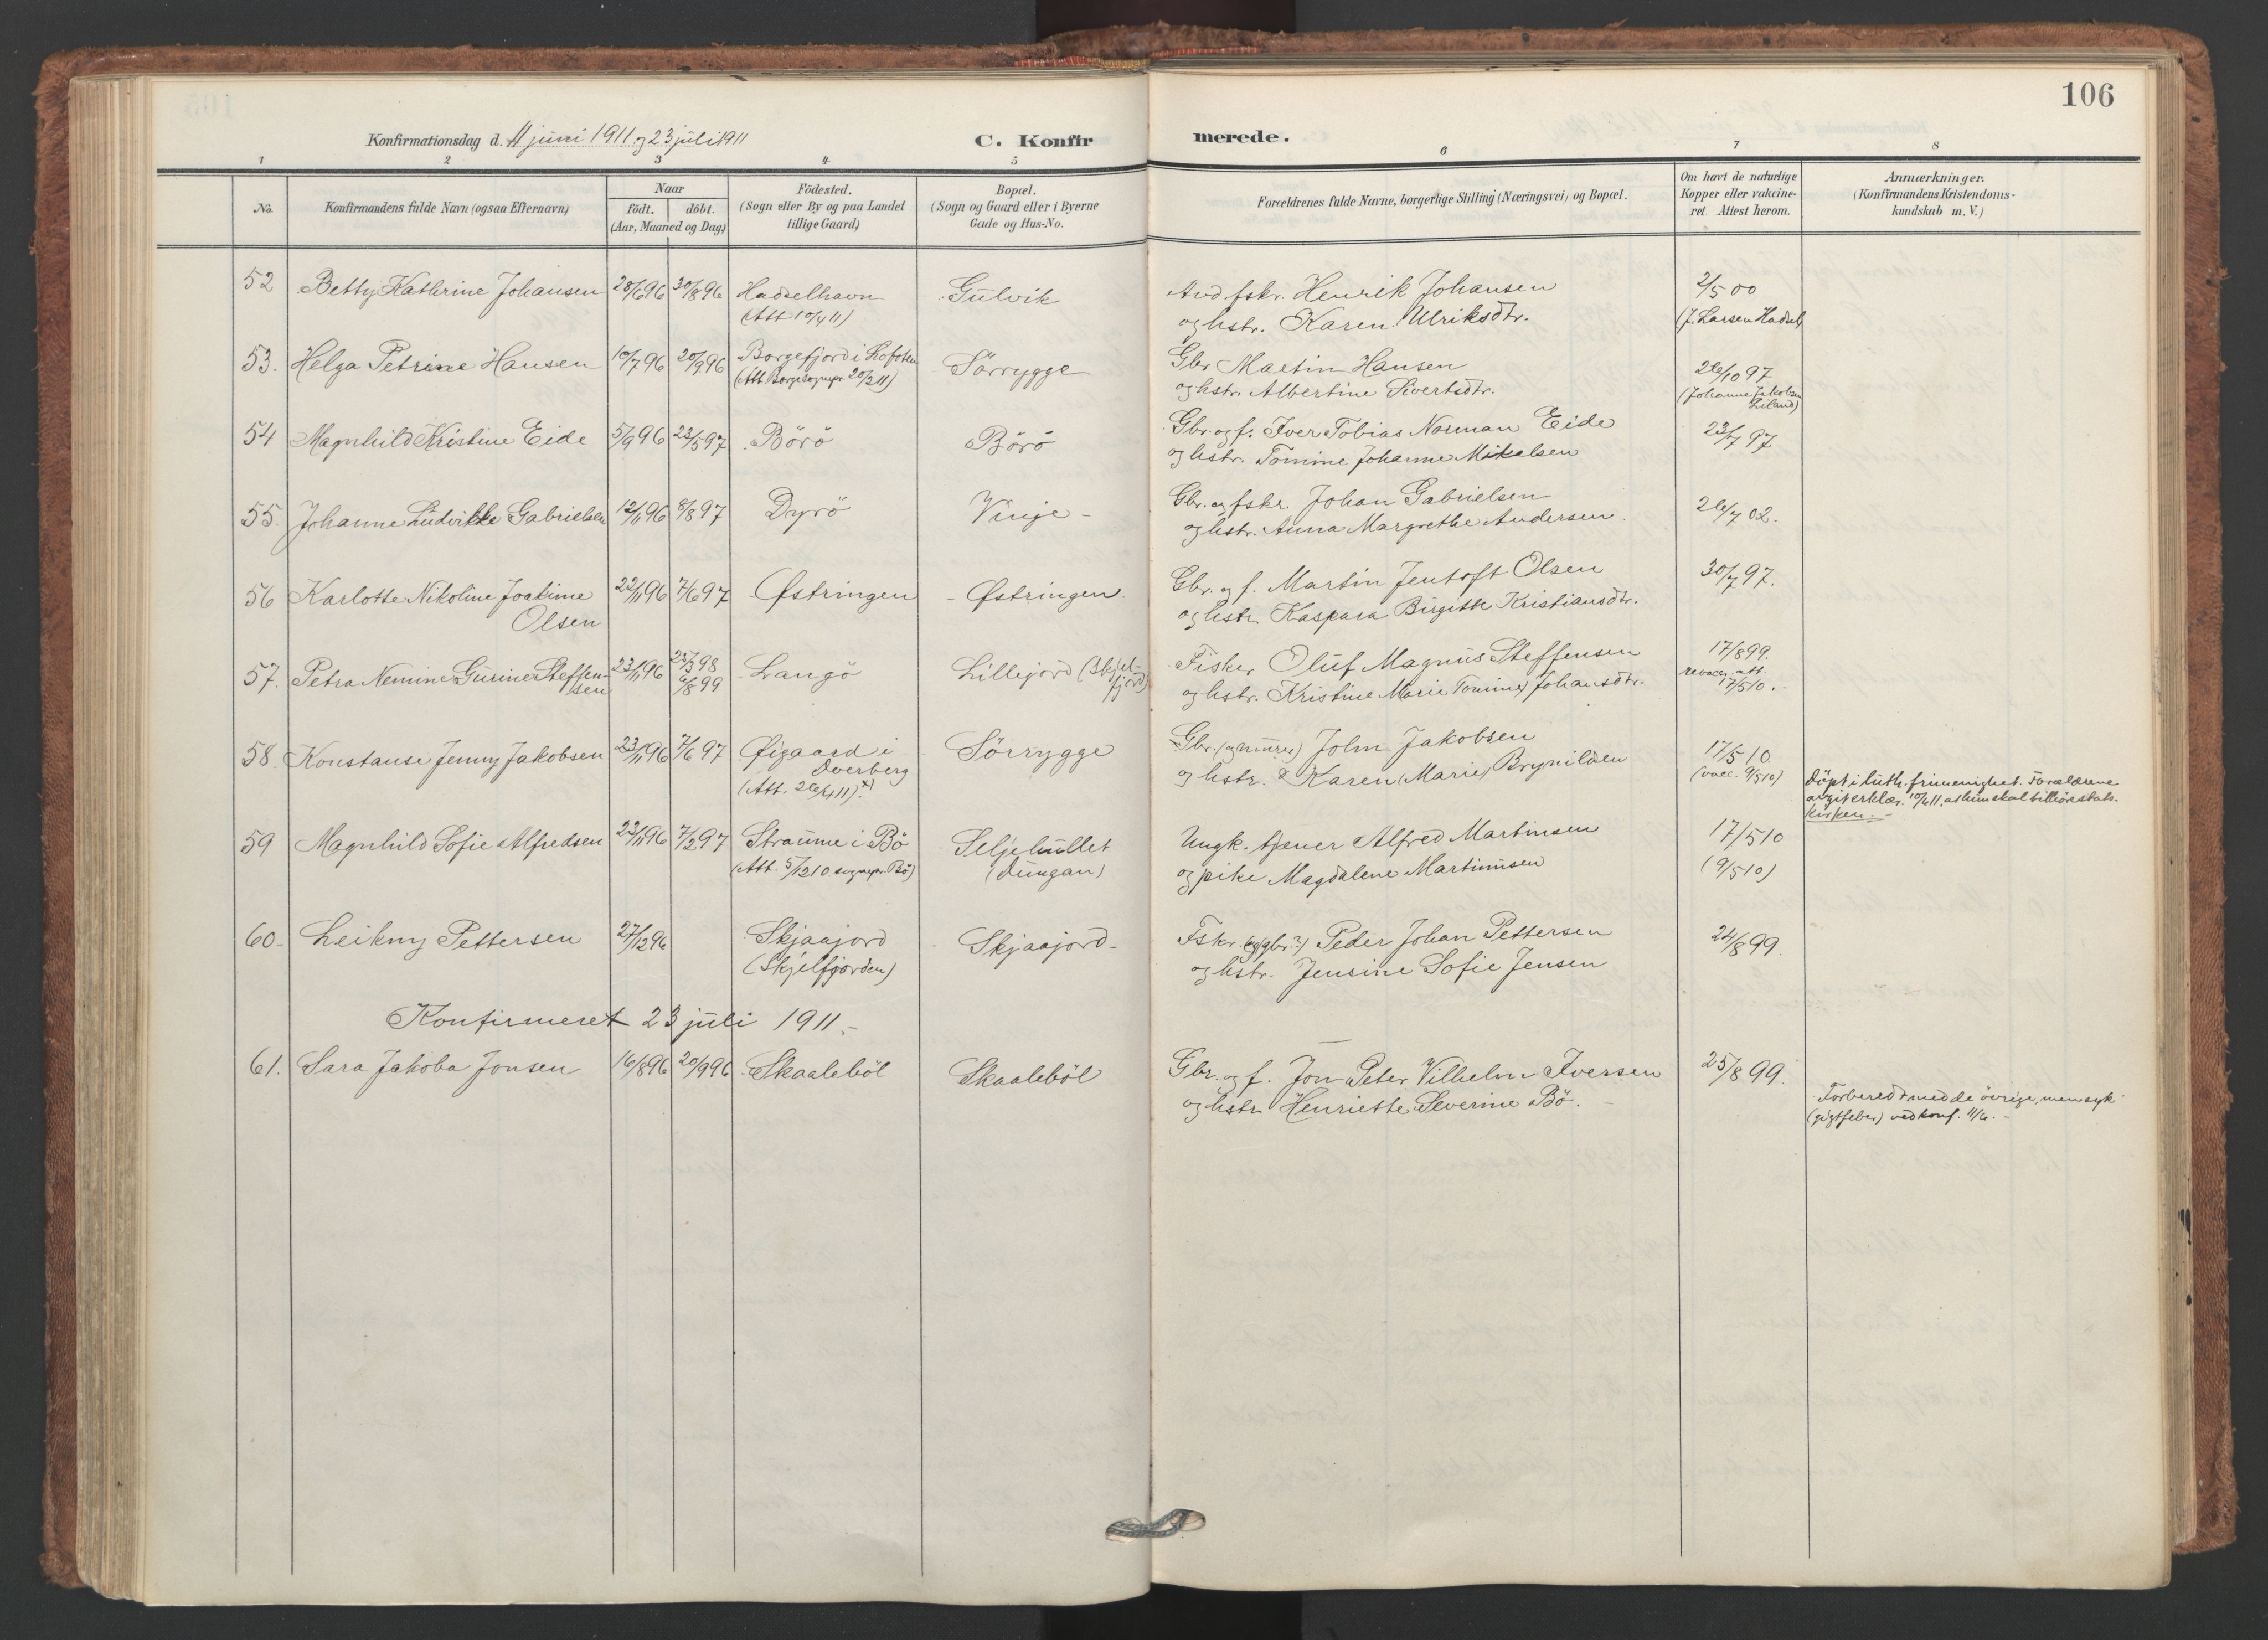 106
Konfirmationsdag d. 11 juni 1911 og 23 juli 1911
C. Konfirmerede.
1 2 3 4 5 6 7 8
No.
Konfirmandens fulde Navn (ogsaa Efternavn)
Naar
födt. döbt.
(Aar, Maaned og Dag)
Födested.
(Sogn eller By og paa Landet
tillige Gaard)
Bopæl.
(Sogn og Gaard eller i Byerne
Gade og Hus-No.
Forældrenes fulde Navne, borgerlige Stilling (Næringsvei) og Bopæl.
Om havt de naturlige
Kopper eller vakcine-
ret. Attest herom.
Anmærkninger.
(Konfirmandens Kristendoms-
kundskab m. V.)
52 Betty Kathrine Johansen 28/6 96 30/8 96 Hadselhavn Gulvik Avd fskr. Henrik Johansen 2/5 00
(Att 10/4 11) og hstr. Karen Ulriksdtr. (J. Larsen Hadsel)
53. Helga Petrine Hansen 10/7 96 20/9 96 Borgefjord i Lofoten Sörrygge Gbr Martin Hansen 26/10 97
(Att Borge sognepr. 20/2 11) og hstr. Albertine Sivertsdtr. (Johanne Jakobsen
Liland)
54 Magnhild Kristine Eide 5/9 96 23/5 97 Börö Börö Gbr. og f. Iver Tobias Norman Eide 23/7 97
og hstr. Tomine Johanne Mikalsen
55. Johanne Ludvikke Gabrielsen 12/11 96 8/8 97 Dyrö Vinje - Gbr. og fskr. Johan Gabrielsen 26/7 02.
og hstr. Anna Margrethe Andersen
56 Karlotte Nikoline Joakime 22/11 96 7/6 97 Østringen Østringen. Gbr. og f. Martin Jentoft Olsen 30/7 97.
Olsen og hstr. Kaspara Birgitte Kristiansdtr.
57. Petra Nemine Gurine Steffen- 23/11 96 25/3 98 Langö Lillejord (Skjel- Fisker Oluf Magnus Steffensen 17/8 99.
sen 6/8 99 fjord) og hstr. Kristine Marie Tomine Johansdtr. revacc. att.
17/5 10.
58. Konstanse Jenny Jakobsen 23/11 96 7/6 97 Øigaard i Sörrygge Gbr. (og murer) John Jakobsen 17/5 10
Dverberg og hstr. Karen (Marie) Brynildsen (vacc. 9/5 10)
(Att. 26/4 11). x)
Döpt i luth. frimenighet. Forældrene
avgit erklær. 10/6 11, at hun skal tilhöre stats-
kirken. -
59 Magnhild Sofie Alfredsen 23/11 96 7/2 97 Straume i Bö Seljehullet Ungk. tjener Alfred Martinsen 17/5 10
(Att. 5/12 10 sognepr Bö) (Dungan) og pike Magdalene Martinusen (9/5 10)
60- Leikny Pettersen 27/12 96 Skjaajord Skjaajord- Fskr. (og gbr.?) Peder Johan Pettersen 24/8 99.
(Skjelfjorden) og hstr. Jensine Sofie Jensen
Konfirmeret 23 juli 1911.-
61. Sara Jakoba Jonsen 16/8 96 20/9 96 Skaaleböl Skaaleböl Gbr. og f. Jon Peter Vilhelm Iversen 25/8 99.
og hstr. Henriette Severine Bö. -
Forberedt med de övrige, men syk
(gigtfeber) ved konf. 11/6. -